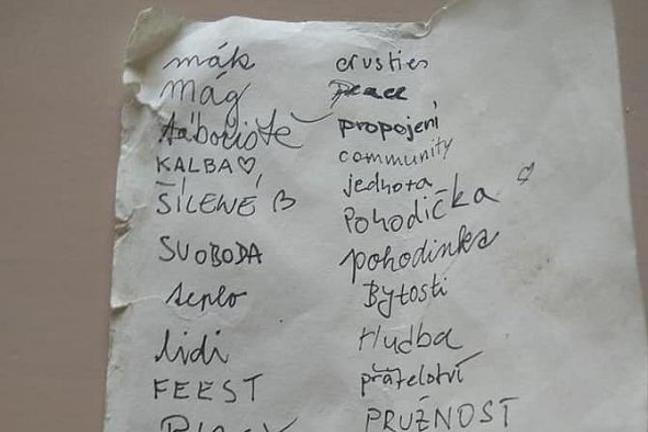 mák
mág
tábořiště
KALBA♡
ŠÍLENÉ
SVOBODA
teplo
lidi
FEEST
crusties
peace
propojení
community
jednota
Pohodička
pohodinka
Bytosti
Hudba
přátelství
PRUŽNOST